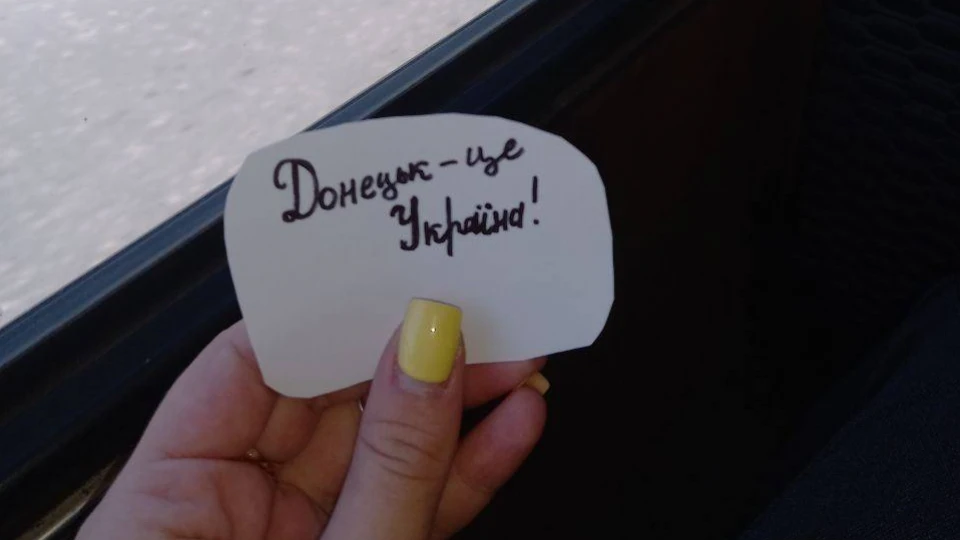 Донецьк - це
Україна!